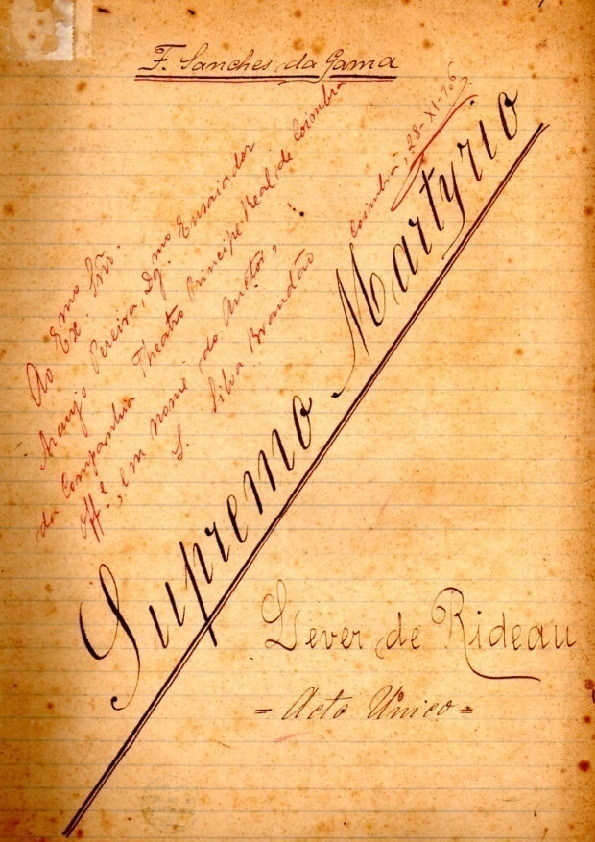 F. Sanches da Gama
Ao Exmo Snr.
Araujo Pereira, Dgmo Ensaiador
da Companhia Theatro Principe Real, de Coimbra
Off.e, em nome do Auctor,
S. Silva Brandão
Coimbra, 28-XI-906.
Supremo Martyrio
Lever de Rideau
= Acto Unico =